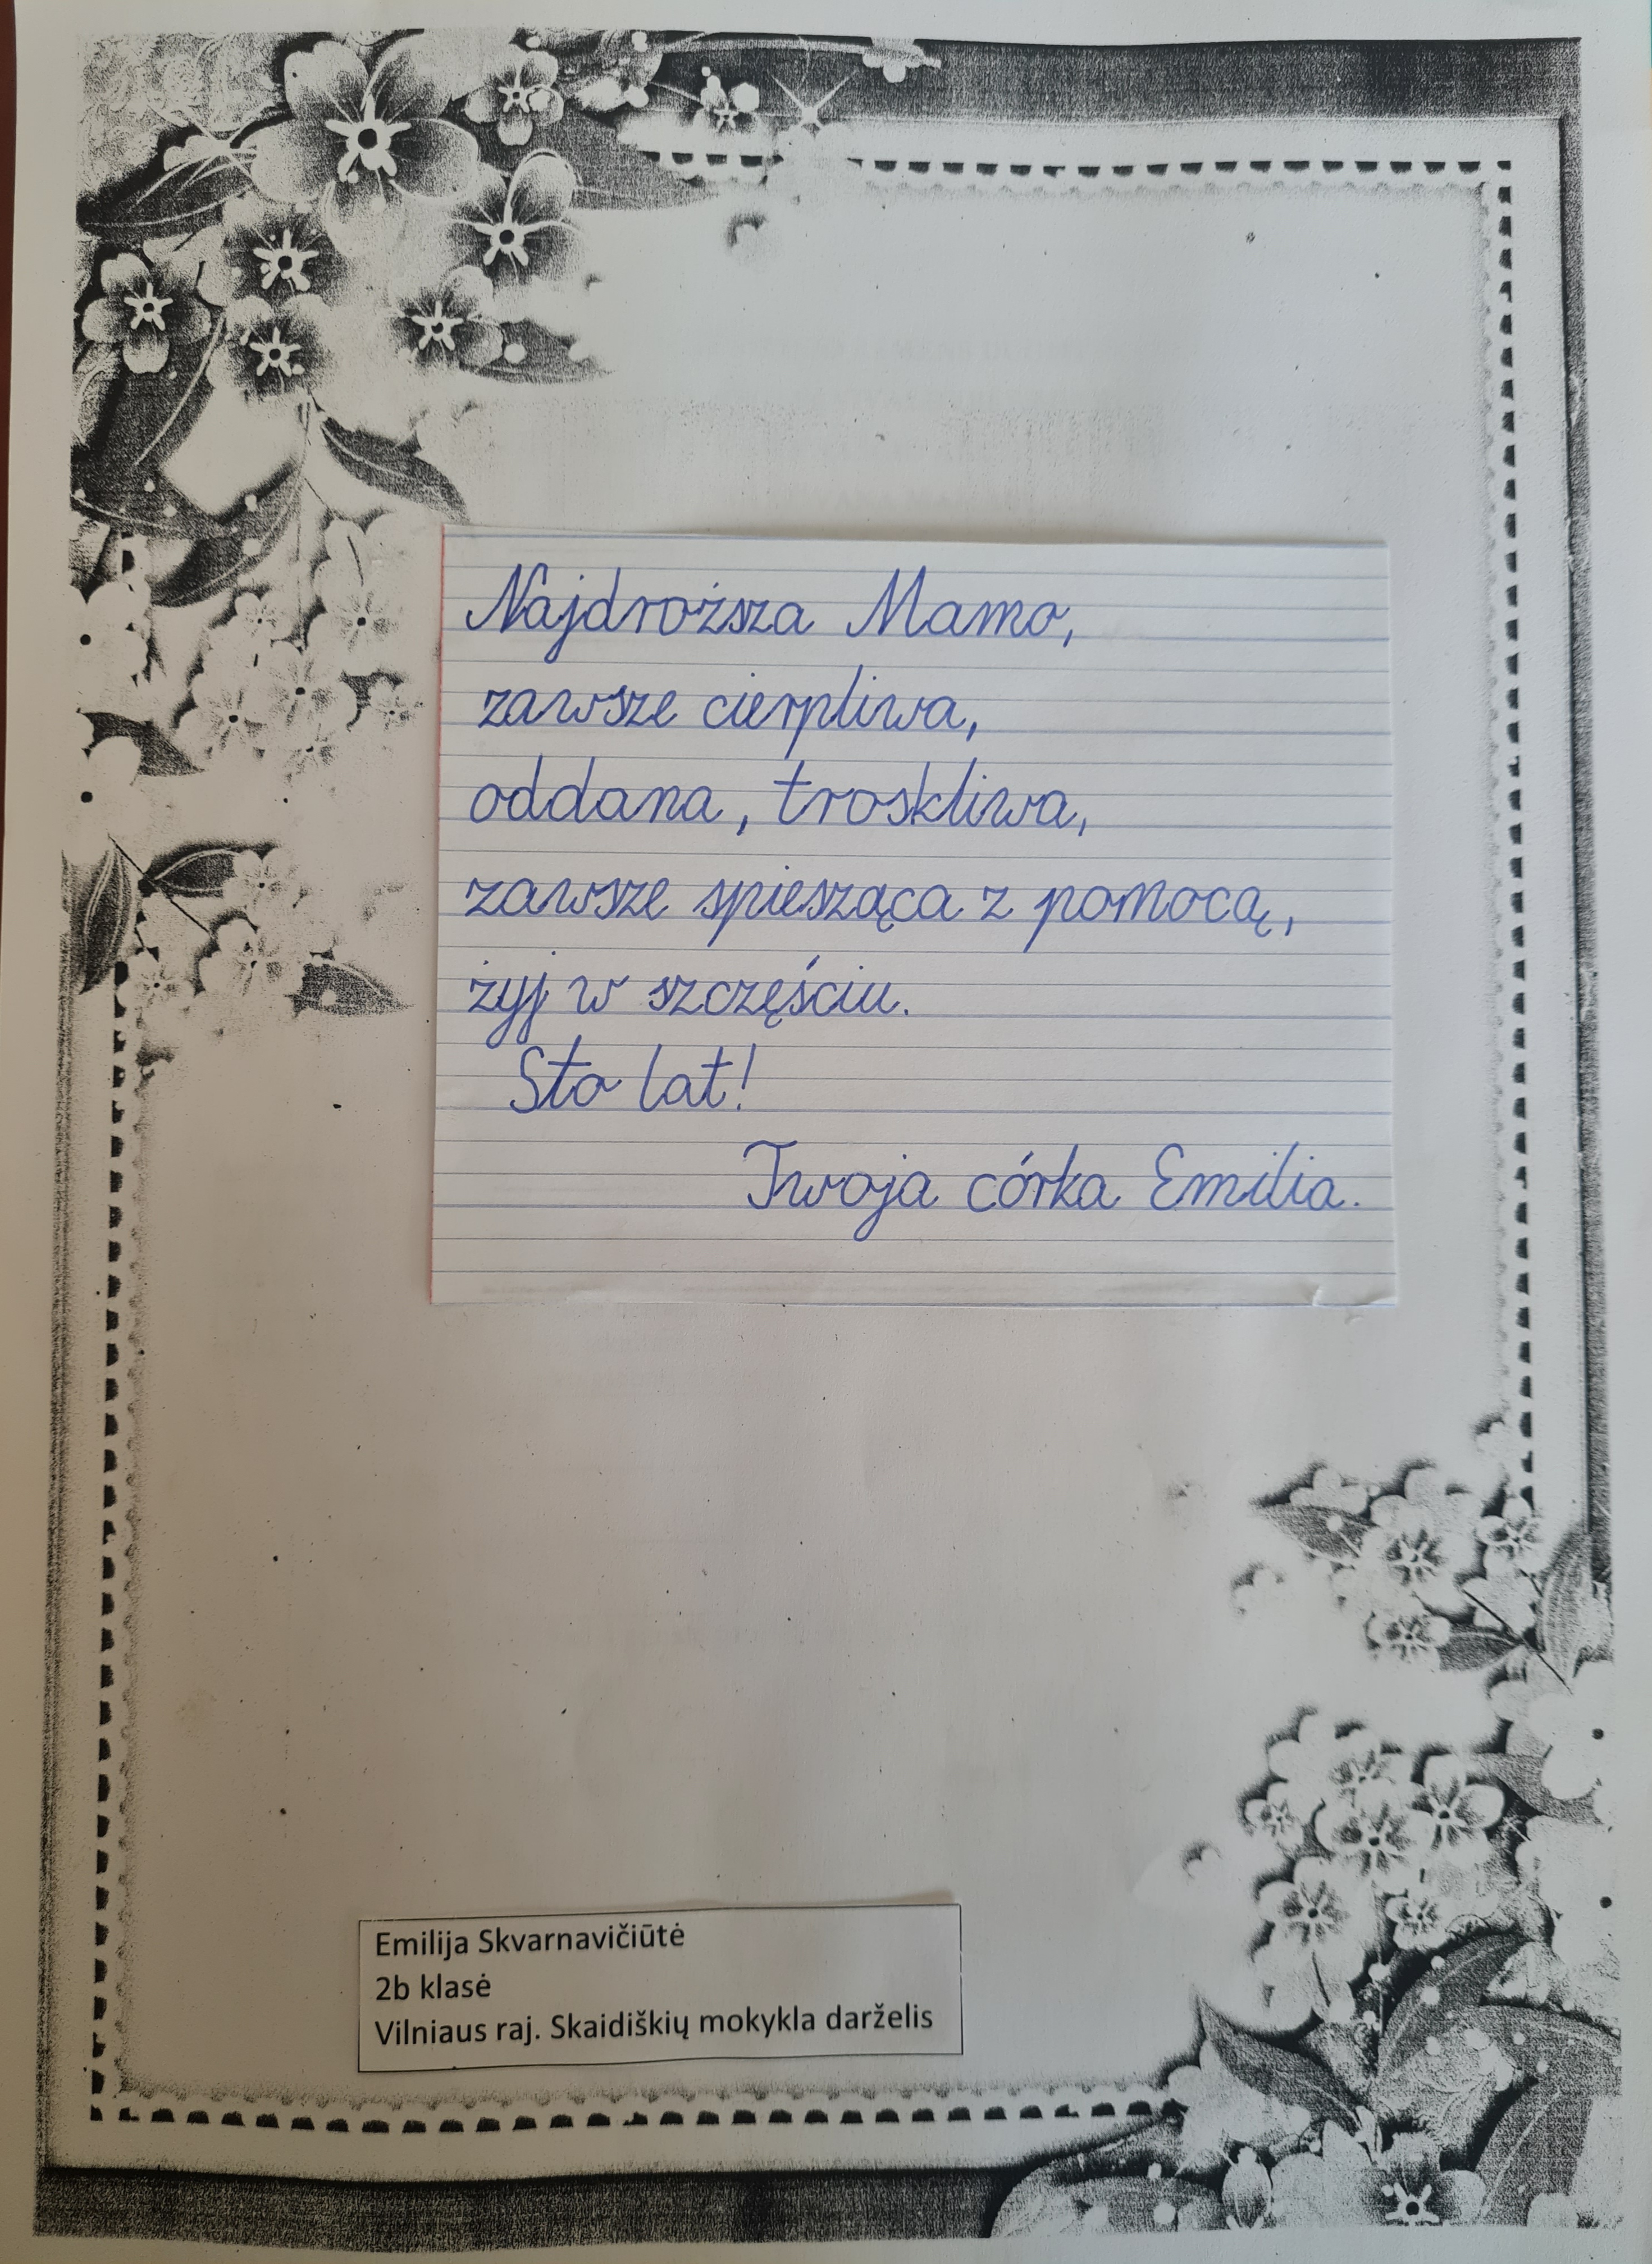 Najdroższa Mamo,
zawsze cierpliwa,
oddana, troskliwa,
zawsze spiesząca z pomocą,
żyj w szczęściu.
Sto lat!
Twoja córka Emilia.
Emilija Skvarnavičiūtė
2b klasė
Vilniaus raj. Skaidiškių mokykla darželis